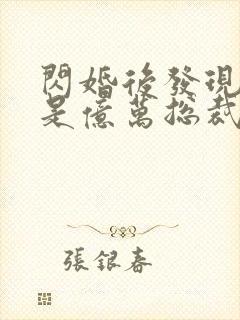 閃婚後發現
是億萬總裁
張銀春